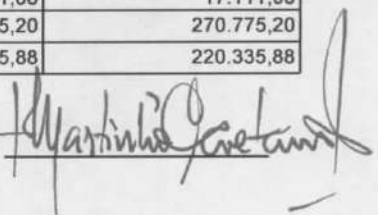 5,20 270.775,20
5,88 220.335,88
Martinho Caetano